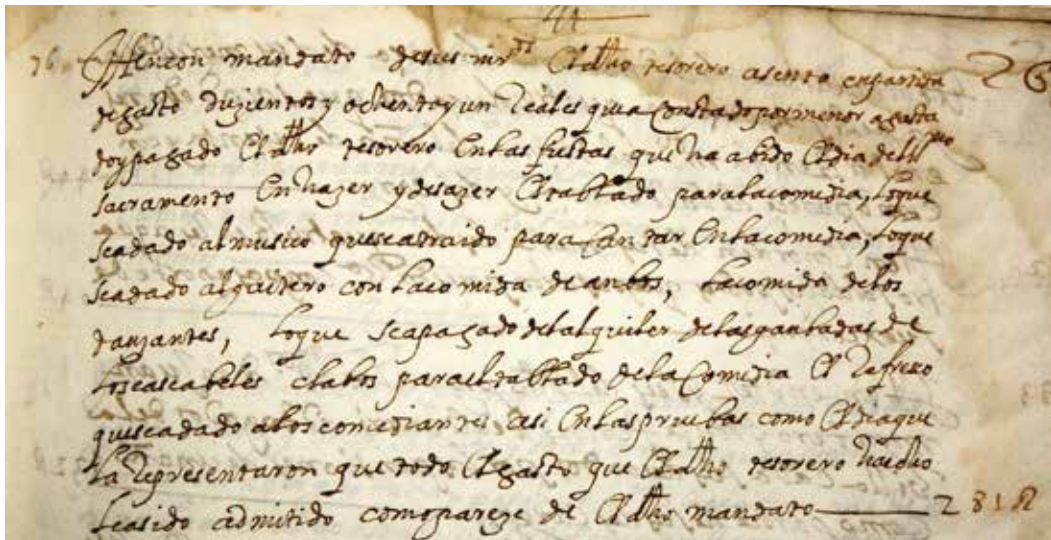 44
76 Itten con mandato de sus mrds el dho tesorero asento en partida 26
de gasto duzientos y ochenta y un Reales que a constado por menor a gasta
do y pagado el dho tesorero en las fiestas que ha abido el dia del SSmo
sacramento en hazer y desazer el tablado para la comedia, lo que
se a dado al musico que se a traido para cantar en la comedia, lo que
se a dado al gaitero con la comida de anbos, la comida de los
danzantes, lo que se a pagado del alquiler de las ganbadas de
los cascabeles clabos para el tablado de la comedia el Refresco
que se a dado a los comediantes asi en las pruebas como el dia que
la Representaron que todo el gasto que el dho tesorero ha echo
le a sido admitido como pareze de el dho mandato 281 R